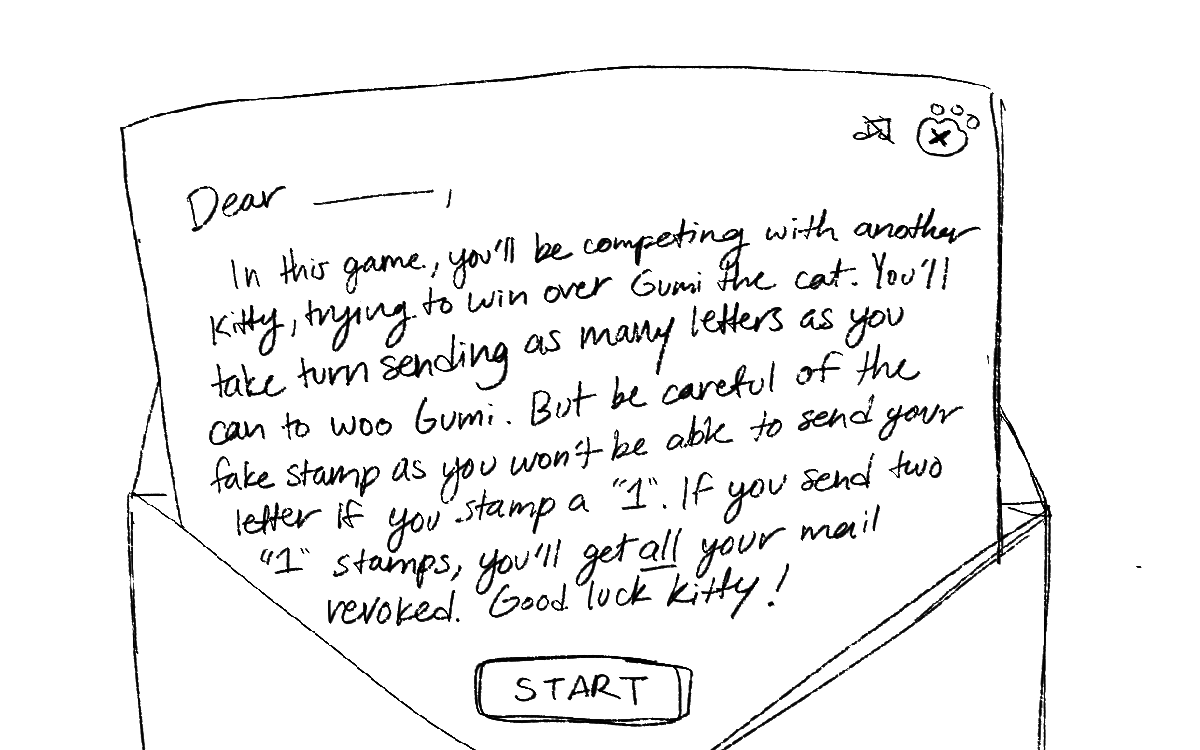 Dear ______,
In this game, you'll be competing with another
kitty, trying to win over Gumi the cat. You'll
take turn sending as many letters as you
can to woo Gumi. But be careful of the
fake stamp as you won't be able to send your
letter if you stamp a "1". If you send two
"1" stamps, you'll get all your mail
revoked. Good luck kitty!
START